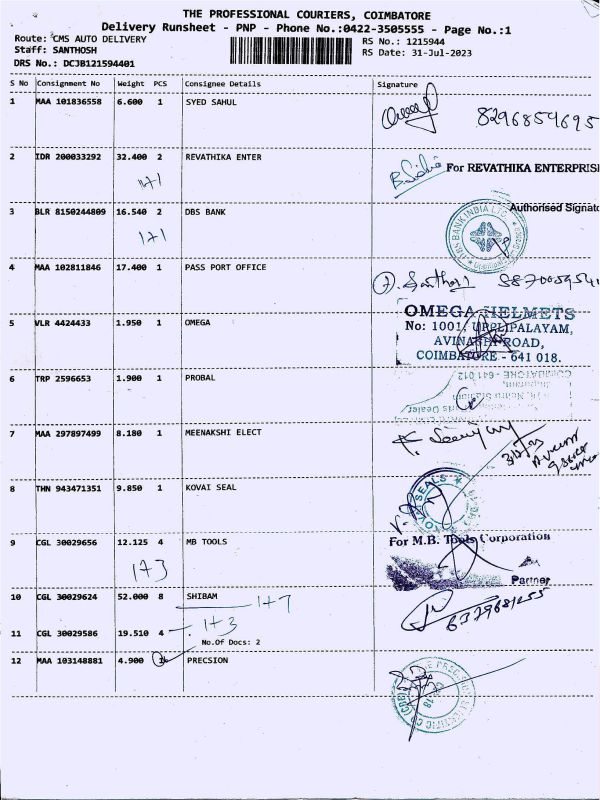 THE PROFESSIONAL COURIERS, COIMBATORE
Delivery Runsheet - PNP - Phone No.:0422-3505555 - Page No.:1
Route: CMS AUTO DELIVERY
RS No.: 1215944
Staff: SANTHOSH
RS Date: 31-Jul-2023
DRS No.: DCJB121594401
S No Consignment No Weight PCS Consignee Details Signature
1 MAA 101836558 6.600 1 SYED SAHUL
8296854695
2 IDR 200033292 32.400 2 REVATHIKA ENTER
For REVATHIKA ENTERPRIS
1+1
Authorised Signato
3 BLR 8150244809 16.540 2 DBS BANK
DBS BANK INDIA LTD.
1+1
4 MAA 102811846 17.400 1 PASS PORT OFFICE
Santhosh
OMEGA HELMETS
5 VLR 4424433 1.950 1 OMEGA
No: 1001, UPPLIPALAYAM,
AVINASHI ROAD,
COIMBATORE - 641 018.
6 TRP 2596653 1.900 1 PROBAL
COIMBATORE - 641 012
7 MAA 297897499 8.180 1 MEENAKSHI ELECT
8 THN 943471351 9.850 1 KOVAI SEAL
KOVAI SEALS
9 CGL 30029656 12.125 4 MB TOOLS
For M.B. Tools Corporation
1+3
Partner
10 CGL 30029624 52.000 8 SHIBAM
1+7
6379681255
11 CGL 30029586 19.510 4
1+3
No.Of Docs: 2
12 MAA 103148881 4.900 PRECSION